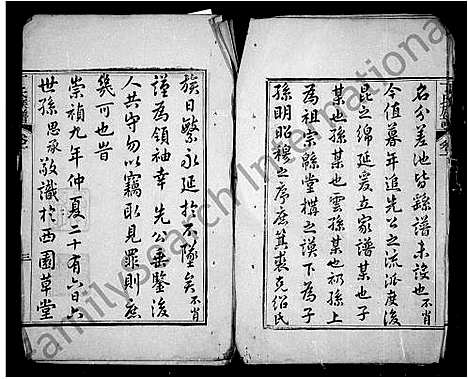 名分差池皆繇譜未詳也不肖
今值暮年追先公之流派庶後
此之綿延爰立家譜某也子
某也孫某也雲孫某也礽孫上
為祖宗繇堂構之謨下為子
孫明昭穆之序庶箕裘克紹氏
族日繁永延於不墜矣不肖
謹為領袖幸先公垂鑒後
人共守勿以竊取見罪則庶
幾可也旹
崇禎九年仲夏二十有六日六
世孫思承敬識於西園草堂
三
familysearch International